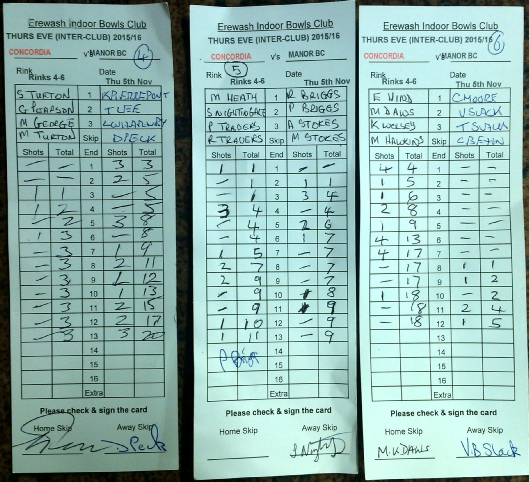 Erewash Indoor Bowls Club
THURS EVE (INTER-CLUB) 2015/16
CONCORDIA v's MANOR BC 4
Rink Date
Rinks 4-6 Thu 5th Nov
S TURTON 1
G PEARSON 2 T LEE
M GEORGE 3
M TURTON Skip D PECK
Shots Total End Shots Total
- - 1 3 3
- - 2 2 5
1 1 3 - 5
1 2 4 - 5
- 2 5 3 8
1 3 6 - 8
- 3 7 1 9
- 3 8 2 11
- 3 9 1 12
- 3 10 1 13
- 3 11 2 15
- 3 12 2 17
- 3 13 3 20
14
15
16
Extra
Please check & sign the card
Home Skip Away Skip
D Peck
Erewash Indoor Bowls Club
THURS EVE (INTER-CLUB) 2015/16
CONCORDIA v's MANOR BC
Rink 5 Date
Rinks 4-6 Thu 5th Nov
M HEATH 1 R BRIGGS
S NIGHTINGALE 2 P BRIGGS
P TRADERS 3 A STOKES
R TRADERS Skip M STOKES
Shots Total End Shots Total
1 1 1 - -
- 1 2 1 1
- 1 3 3 4
3 4 4 - 4
- 4 5 2 6
- 4 6 1 7
1 5 7 - 7
2 7 8 - 7
2 9 9 - 7
- 9 10 1 8
- 9 11 1 9
1 10 12 - 9
1 11 13 - 9
14
15
16
Extra
Please check & sign the card
Home Skip Away Skip
Erewash Indoor Bowls Club
THURS EVE (INTER-CLUB) 2015/16
CONCORDIA v's MANOR BC 6
Rink Date
Rinks 4-6 Thu 5th Nov
E HIND 1 C MOORE
M DAWS 2 V SLACK
K WOLSEY 3
M HAWKINS Skip
Shots Total End Shots Total
4 4 1 - -
1 5 2 - -
1 6 3 - -
2 8 4 - -
1 9 5 - -
4 13 6 - -
4 17 7 - -
- 17 8 1 1
- 17 9 1 2
1 18 10 - 2
- 18 11 2 4
- 18 12 1 5
13
14
15
16
Extra
Please check & sign the card
Home Skip Away Skip
M.K DAWS V.B Slack